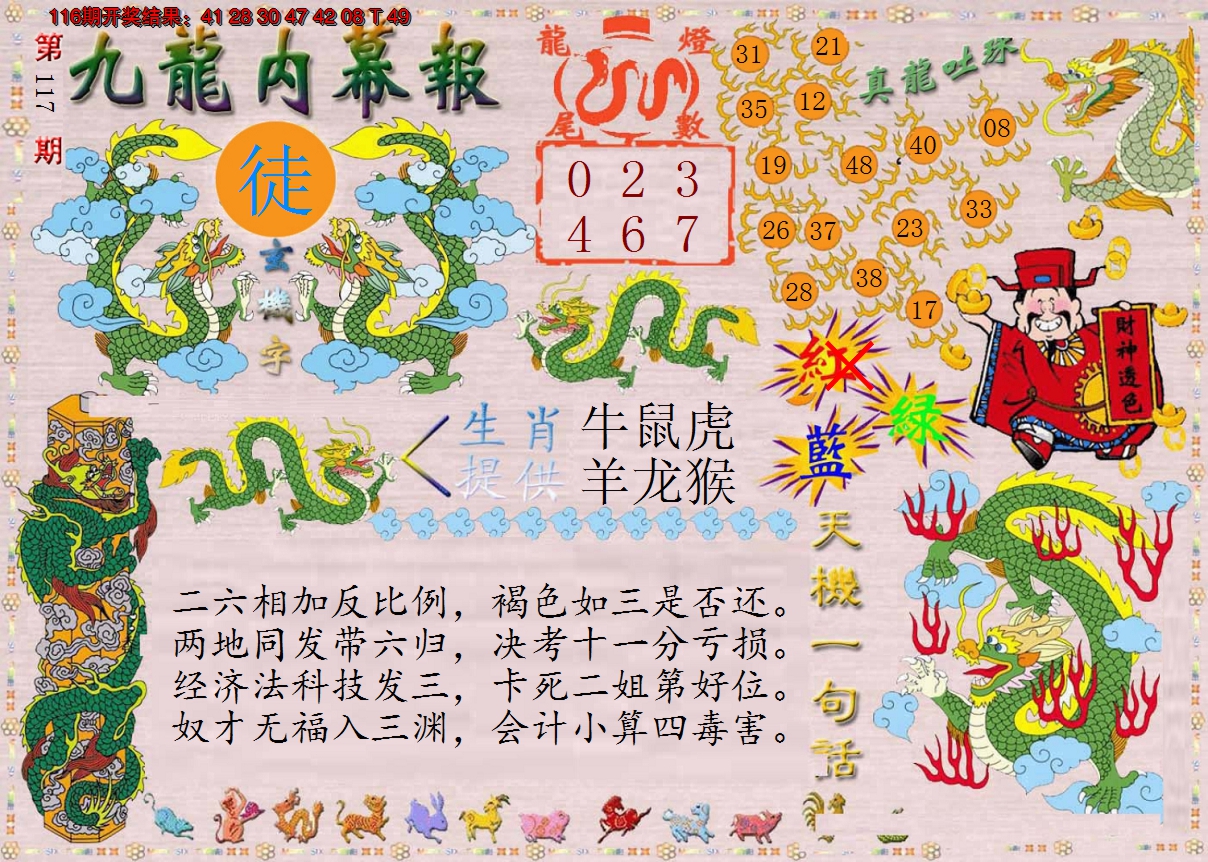 116期开奖结果：41 28 30 47 42 08 T 49
第117期
九龍内幕報
徒
玄機字
龍燈
尾數
0 2 3
4 6 7
真龍吐珠
31 21
35 12
19 48 40 08
26 37 23 33
28 38 17
財神透色
紅
綠
藍
生肖 牛鼠虎
提供 羊龙猴
天機一句話
二六相加反比例，褐色如三是否还。
两地同发带六归，决考十一分亏损。
经济法科技发三，卡死二姐第好位。
奴才无福入三渊，会计小算四毒害。